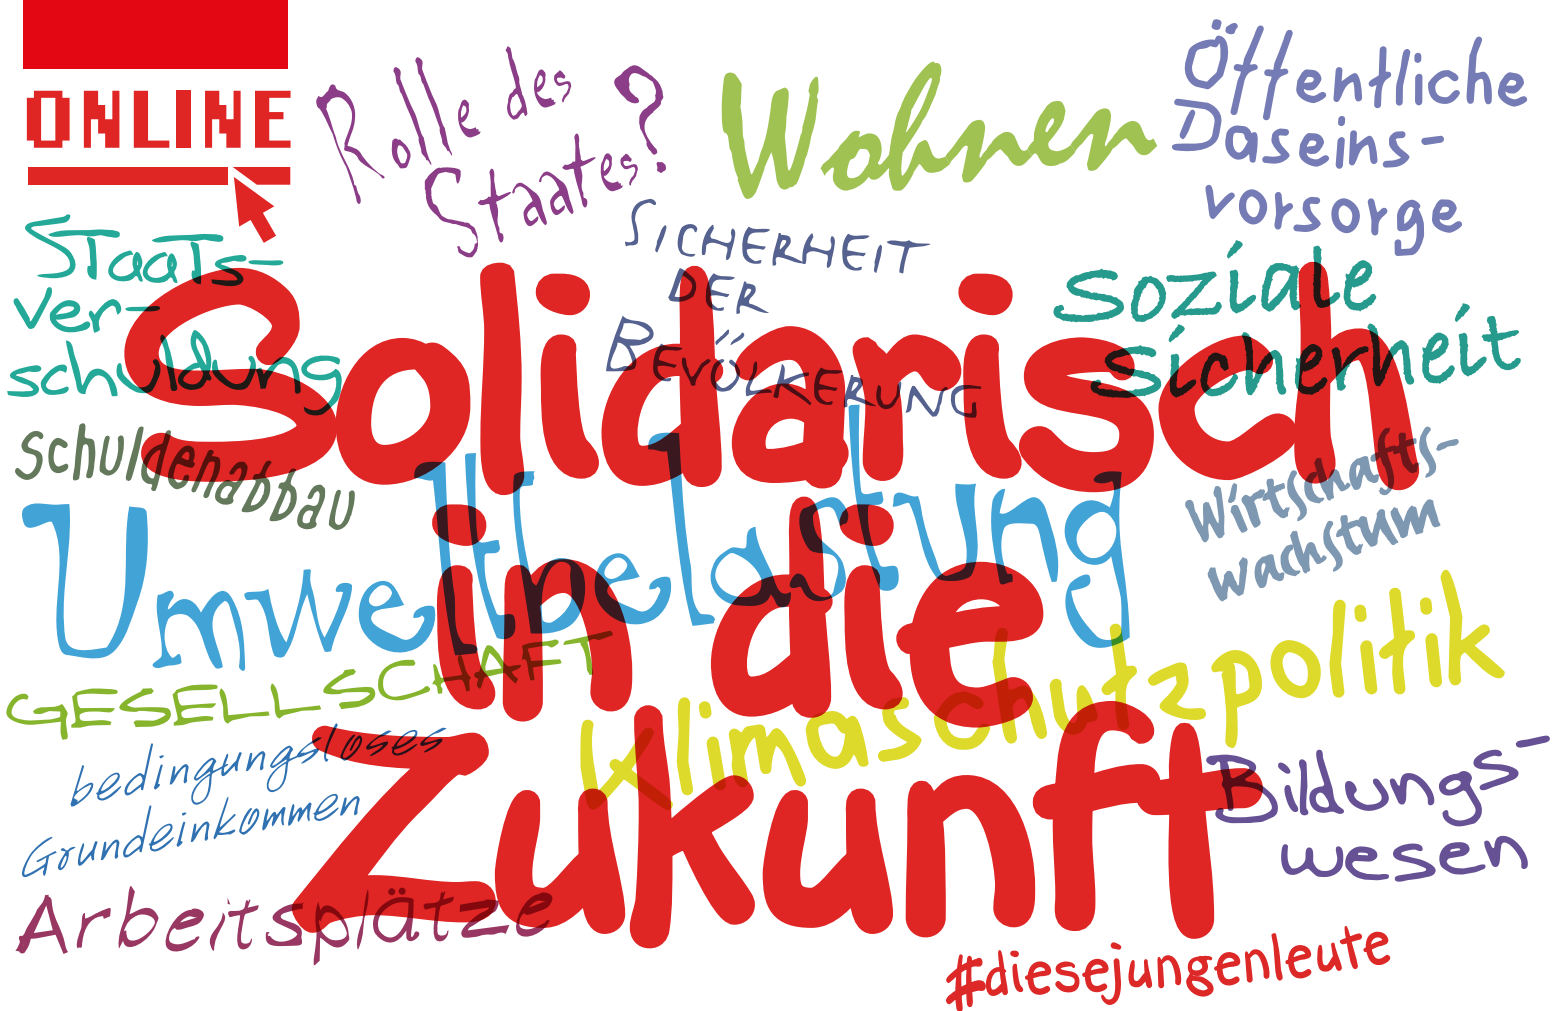 ONLINE
Rolle des
Staates?
Wohnen
Öffentliche
Daseins-
vorsorge
Staats-
ver-
schuldung
SICHERHEIT
DER
BEVÖLKERUNG
soziale
sicherheit
Solidarisch
in die
Zukunft
schuldenabbau
Umweltbelastung
Wirtschafts-
wachstum
GESELLSCHAFT
Klimaschutzpolitik
bedingungsloses
Grundeinkommen
Bildungs-
wesen
Arbeitsplätze
#diesejungenleute